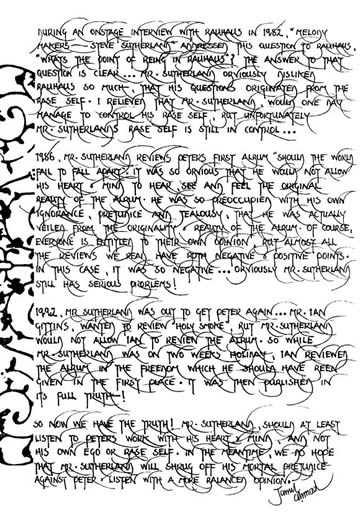 DURING AN ONSTAGE INTERVIEW WITH BAUHAUS IN 1982, "MELODY
MAKERS - STEVE SUTHERLAND" ADDRESSED THIS QUESTION TO BAUHAUS.
"WHATS THE POINT OF BEING IN BAUHAUS"? THE ANSWER TO THAT
QUESTION IS CLEAR... MR. SUTHERLAND OBVIOUSLY DISLIKED
BAUHAUS SO MUCH, THAT HIS QUESTIONS ORIGINATED FROM THE
BASE SELF. I BELIEVED THAT MR. SUTHERLAND, WOULD ONE DAY
MANAGE TO CONTROL HIS BASE SELF, BUT UNFORTUNATELY
MR. SUTHERLANDS BASE SELF IS STILL IN CONTROL...
1986, MR. SUTHERLAND REVIEWS PETERS FIRST ALBUM "SHOULD THE WORLD
FAIL TO FALL APART". IT WAS SO OBVIOUS THAT HE WOULD NOT ALLOW
HIS HEART & MIND TO HEAR, SEE AND FEEL THE ORIGINAL
BEAUTY OF THE ALBUM. HE WAS SO PREOCCUPIED WITH HIS OWN
IGNORANCE, PREJUDICE AND JEALOUSY, THAT HE WAS ACTUALLY
VEILED FROM THE ORIGINALITY & BEAUTY OF THE ALBUM. OF COURSE,
EVERYONE IS ENTITLED TO THEIR OWN OPINION, BUT ALMOST ALL
THE REVIEWS WE READ, HAVE BOTH NEGATIVE & POSITIVE POINTS.
IN THIS CASE, IT WAS SO NEGATIVE... OBVIOUSLY MR. SUTHERLAND
STILL HAS SERIOUS PROBLEMS!
1992, MR. SUTHERLAND WAS OUT TO GET PETER AGAIN... MR. IAN
GITTINS, WANTED TO REVIEW "HOLY SMOKE", BUT MR. SUTHERLAND
WOULD NOT ALLOW IAN TO REVIEW THE ALBUM. SO WHILE
MR. SUTHERLAND WAS ON TWO WEEKS HOLIDAY, IAN REVIEWED
THE ALBUM IN THE FREEDOM WHICH HE SHOULD HAVE BEEN
GIVEN IN THE FIRST PLACE. IT WAS THEN PUBLISHED IN
ITS FULL TRUTH-!
SO NOW WE HAVE THE TRUTH! MR. SUTHERLAND, SHOULD AT LEAST
LISTEN TO PETERS WORK WITH HIS HEART & MIND, AND NOT
HIS OWN EGO OR BASE SELF. IN THE MEANTIME, WE DO HOPE
THAT MR. SUTHERLAND WILL SHRUG OFF HIS MORTAL PREJUDICE
AGAINST PETER & LISTEN WITH A MORE BALANCED OPINION.
Jamil Ahmad